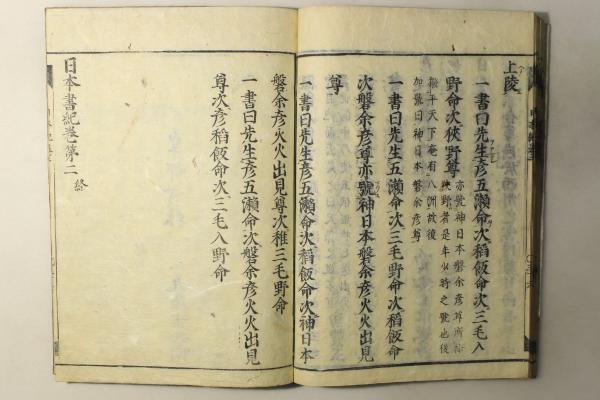 上陵
一書曰先生彦五瀬命次稻飯命次三毛入
野命次狹野尊亦號神日本磐余彦尊所稱
狹野者是年少時之號也後
撥平天下奄有八洲故復
加號曰神日本磐余彦尊
一書曰先生彦五瀬命次三毛野命次稻飯命
次磐余彦尊亦號神日本磐余彦火火出見
尊
一書曰先生彦五瀬命次稻飯命次神日本
磐余彦火火出見尊次稚三毛野命
一書曰先生彦五瀬命次磐余彦火火出見
尊次彦稻飯命次三毛入野命
日本書紀巻第二 終